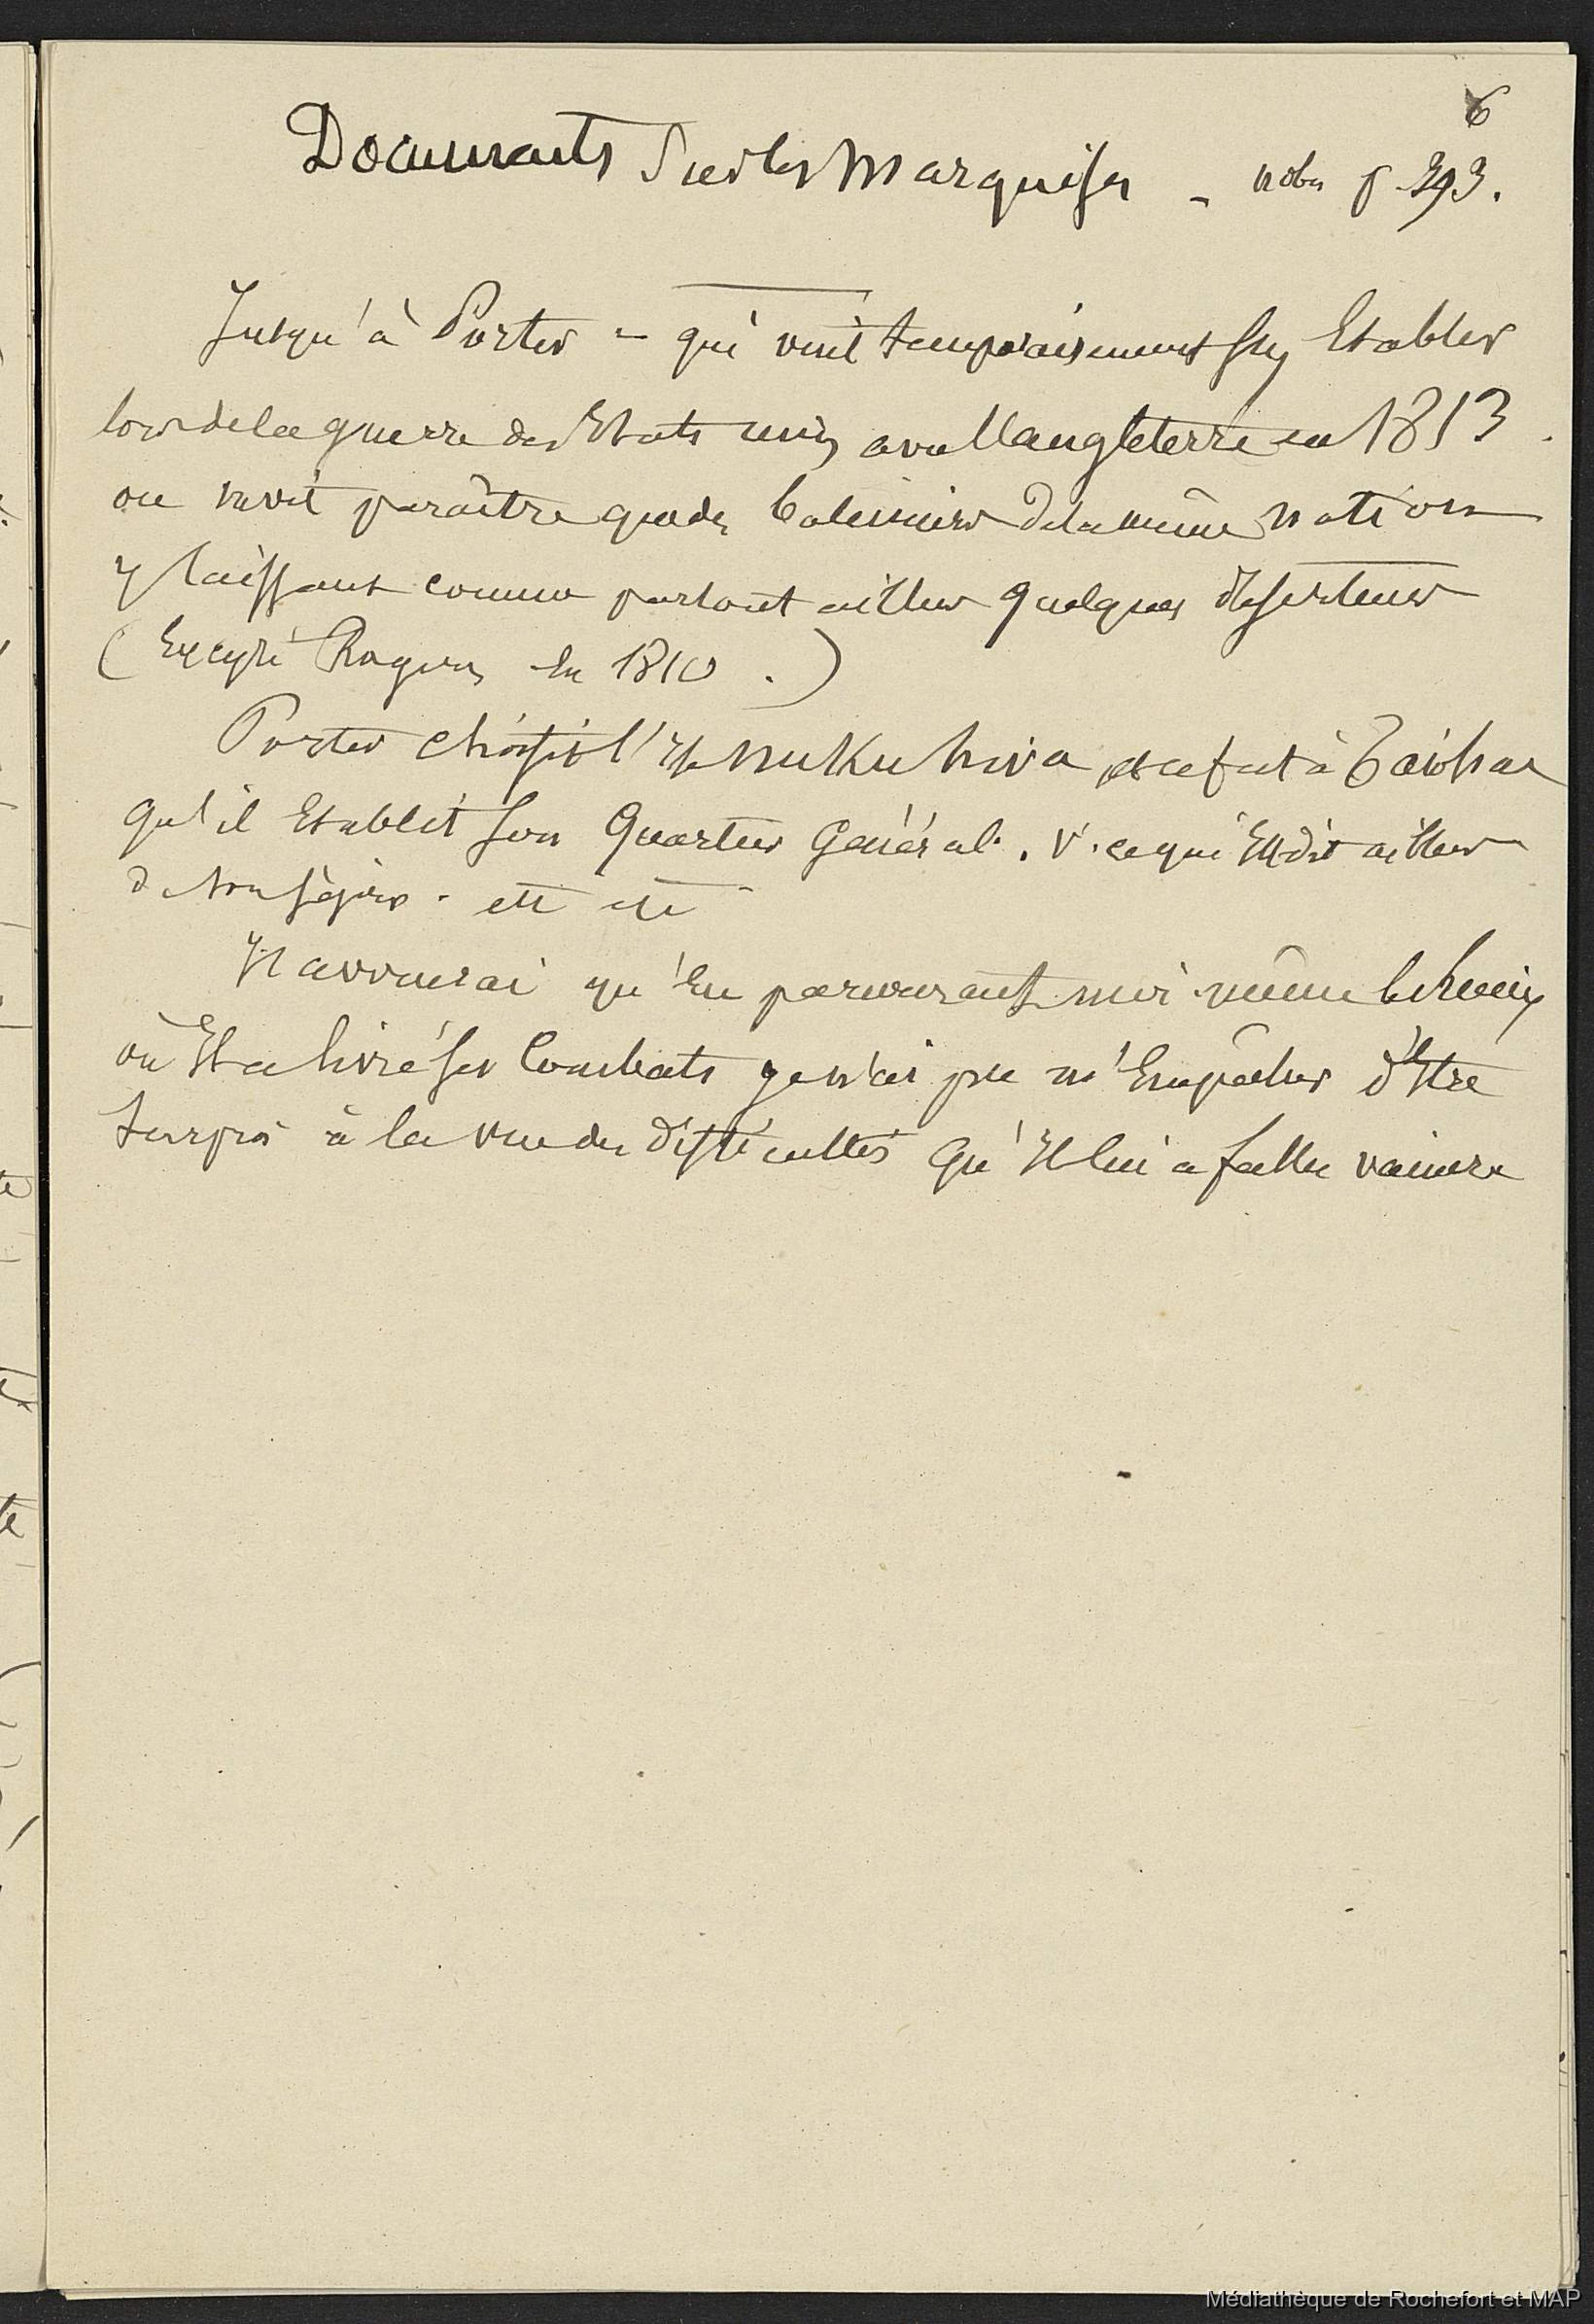 6
Documents sur les Marquises - notes p 293.
Jusqu'à Porter - qui vint temporairement s'y Etablir
lors de la guerre des Etats unis avec l'angleterre en 1813.
on ne vit paraître que des baleiniers de la même nation
y laissant comme partout ailleurs quelques déserteurs
(Excepté en 1810.)
Porter choisit l'Ile Nuku hiva et ce fut à Taiohae
qu'il Etablit son Quartier Général. V. ce qui Est dit ailleurs
de son séjour. etc etc
J'avouerai qu'En parcourant moi même les lieux
où Il a livré ses Combats je n'ai pu m'Empêcher d'Etre
surpris à la vue des difficultés qu'Il lui a fallu vaincre
Médiathèque de Rochefort et MAP